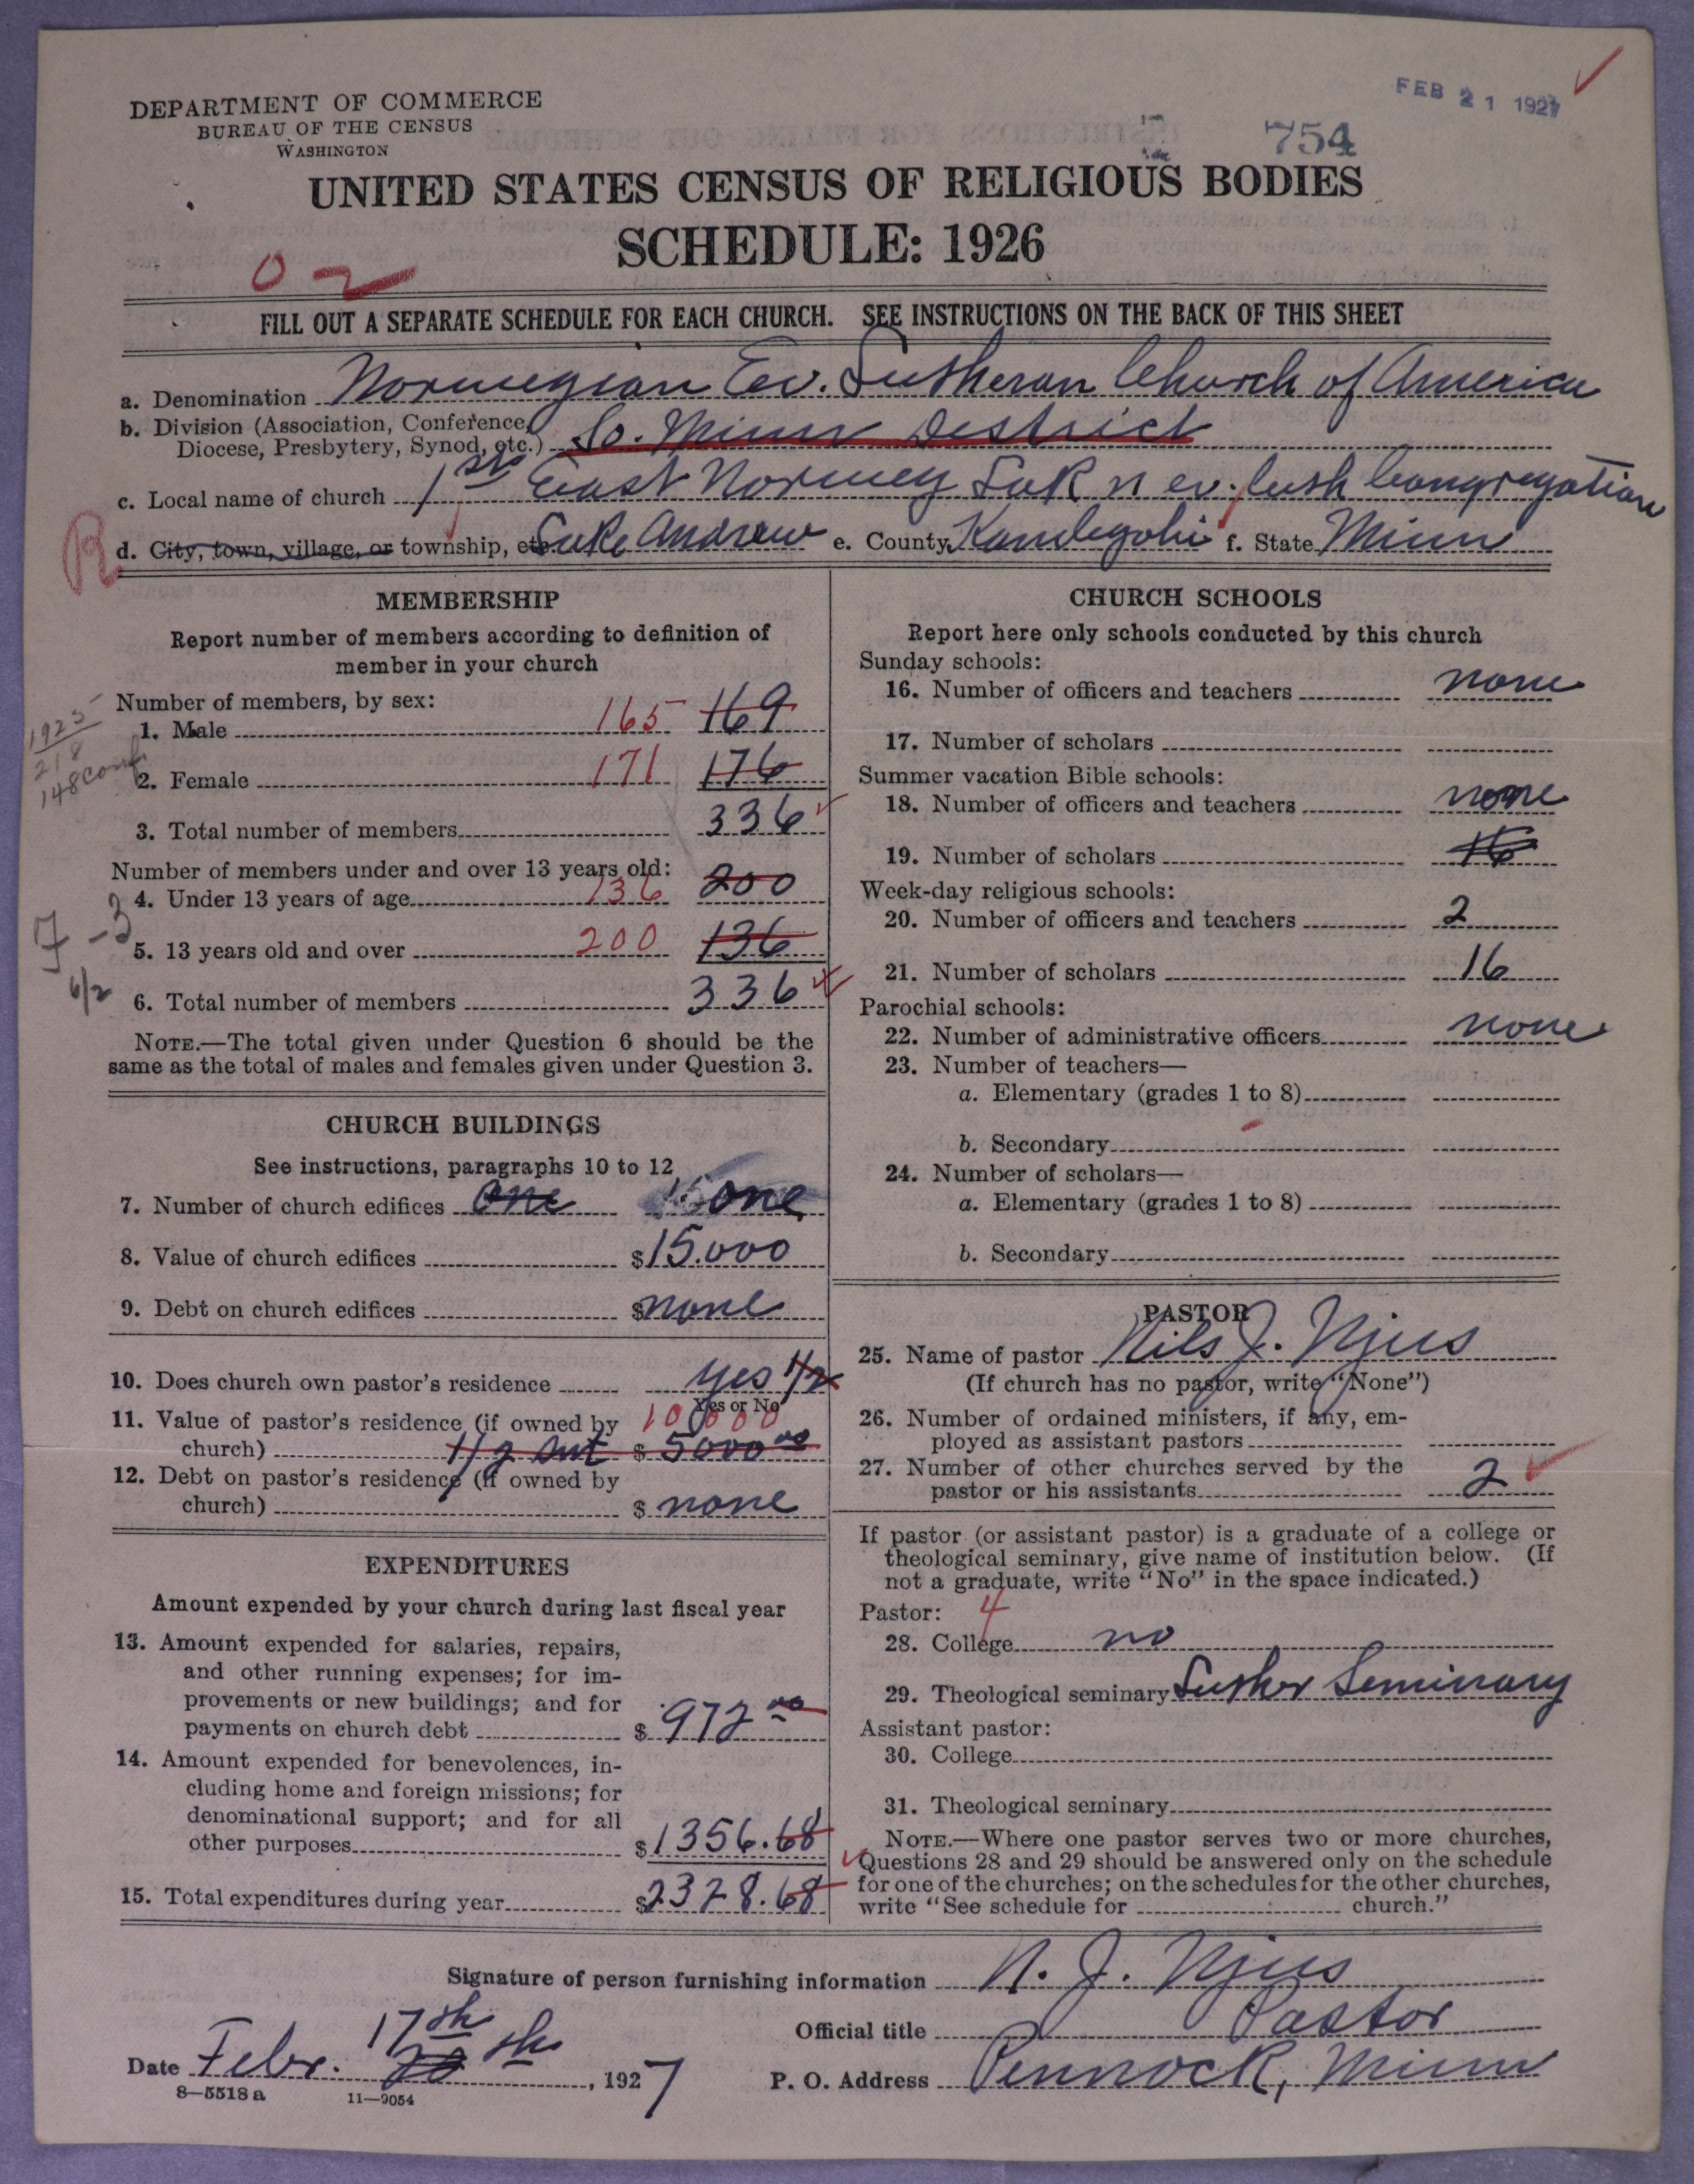 FEB 21 1927
DEPARTMENT OF COMMERCE
BUREAU OF THE CENSUS
WASHINGTON
754
UNITED STATES CENSUS OF RELIGIOUS BODIES
SCHEDULE: 1926
0 2
FILL OUT A SEPARATE SCHEDULE FOR EACH CHURCH. SEE INSTRUCTIONS ON THE BACK OF THIS SHEET
a. Denomination Norwegian Ev. Lutheran Church of America
b. Division (Association, Conference,
Diocese, Presbytery, Synod, etc.) So. Minn District
c. Local name of church 1st East Norwey Lak n ev. luth Congregation
R d. City, town, village, or township, etc. Lake Andrew e. County Kandiyohi f. State Minn
MEMBERSHIP
Report number of members according to definition of
member in your church
Number of members, by sex:
1925
218
148 conf
1. Male 165 169
2. Female 171 176
3. Total number of members 336
Number of members under and over 13 years old:
4. Under 13 years of age 136 200
5. 13 years old and over 200 136
6. Total number of members 336
NOTE.—The total given under Question 6 should be the
same as the total of males and females given under Question 3.
CHURCH BUILDINGS
See instructions, paragraphs 10 to 12
7. Number of church edifices one one
8. Value of church edifices $15.000
9. Debt on church edifices $none
10. Does church own pastor's residence yes 1/2
Yes or No
11. Value of pastor's residence (if owned by 10000
church) 1/2 int $5000 00
12. Debt on pastor's residence (if owned by
church) $ none
EXPENDITURES
Amount expended by your church during last fiscal year
13. Amount expended for salaries, repairs,
and other running expenses; for im-
provements or new buildings; and for
payments on church debt $ 972 00
14. Amount expended for benevolences, in-
cluding home and foreign missions; for
denominational support; and for all
other purposes $1356.68
15. Total expenditures during year $2328.68
CHURCH SCHOOLS
Report here only schools conducted by this church
Sunday schools:
16. Number of officers and teachers none
17. Number of scholars
Summer vacation Bible schools:
18. Number of officers and teachers none
19. Number of scholars 16
Week-day religious schools:
20. Number of officers and teachers 2
21. Number of scholars 16
Parochial schools:
22. Number of administrative officers none
23. Number of teachers—
a. Elementary (grades 1 to 8)
b. Secondary
24. Number of scholars—
a. Elementary (grades 1 to 8)
b. Secondary
PASTOR
25. Name of pastor Nils J. Njus
(If church has no pastor, write "None")
26. Number of ordained ministers, if any, em-
ployed as assistant pastors
27. Number of other churches served by the
pastor or his assistants 2
If pastor (or assistant pastor) is a graduate of a college or
theological seminary, give name of institution below. (If
not a graduate, write "No" in the space indicated.)
Pastor: 4
28. College no
29. Theological seminary Luther Seminary
Assistant pastor:
30. College
31. Theological seminary
NOTE.—Where one pastor serves two or more churches,
Questions 28 and 29 should be answered only on the schedule
for one of the churches; on the schedules for the other churches,
write "See schedule for church."
Signature of person furnishing information N. J. Njus
Official title Pastor
Date Febr. 17th 20 th, 1927
P. O. Address Pennock, Minn
8—5518 a 11—9054